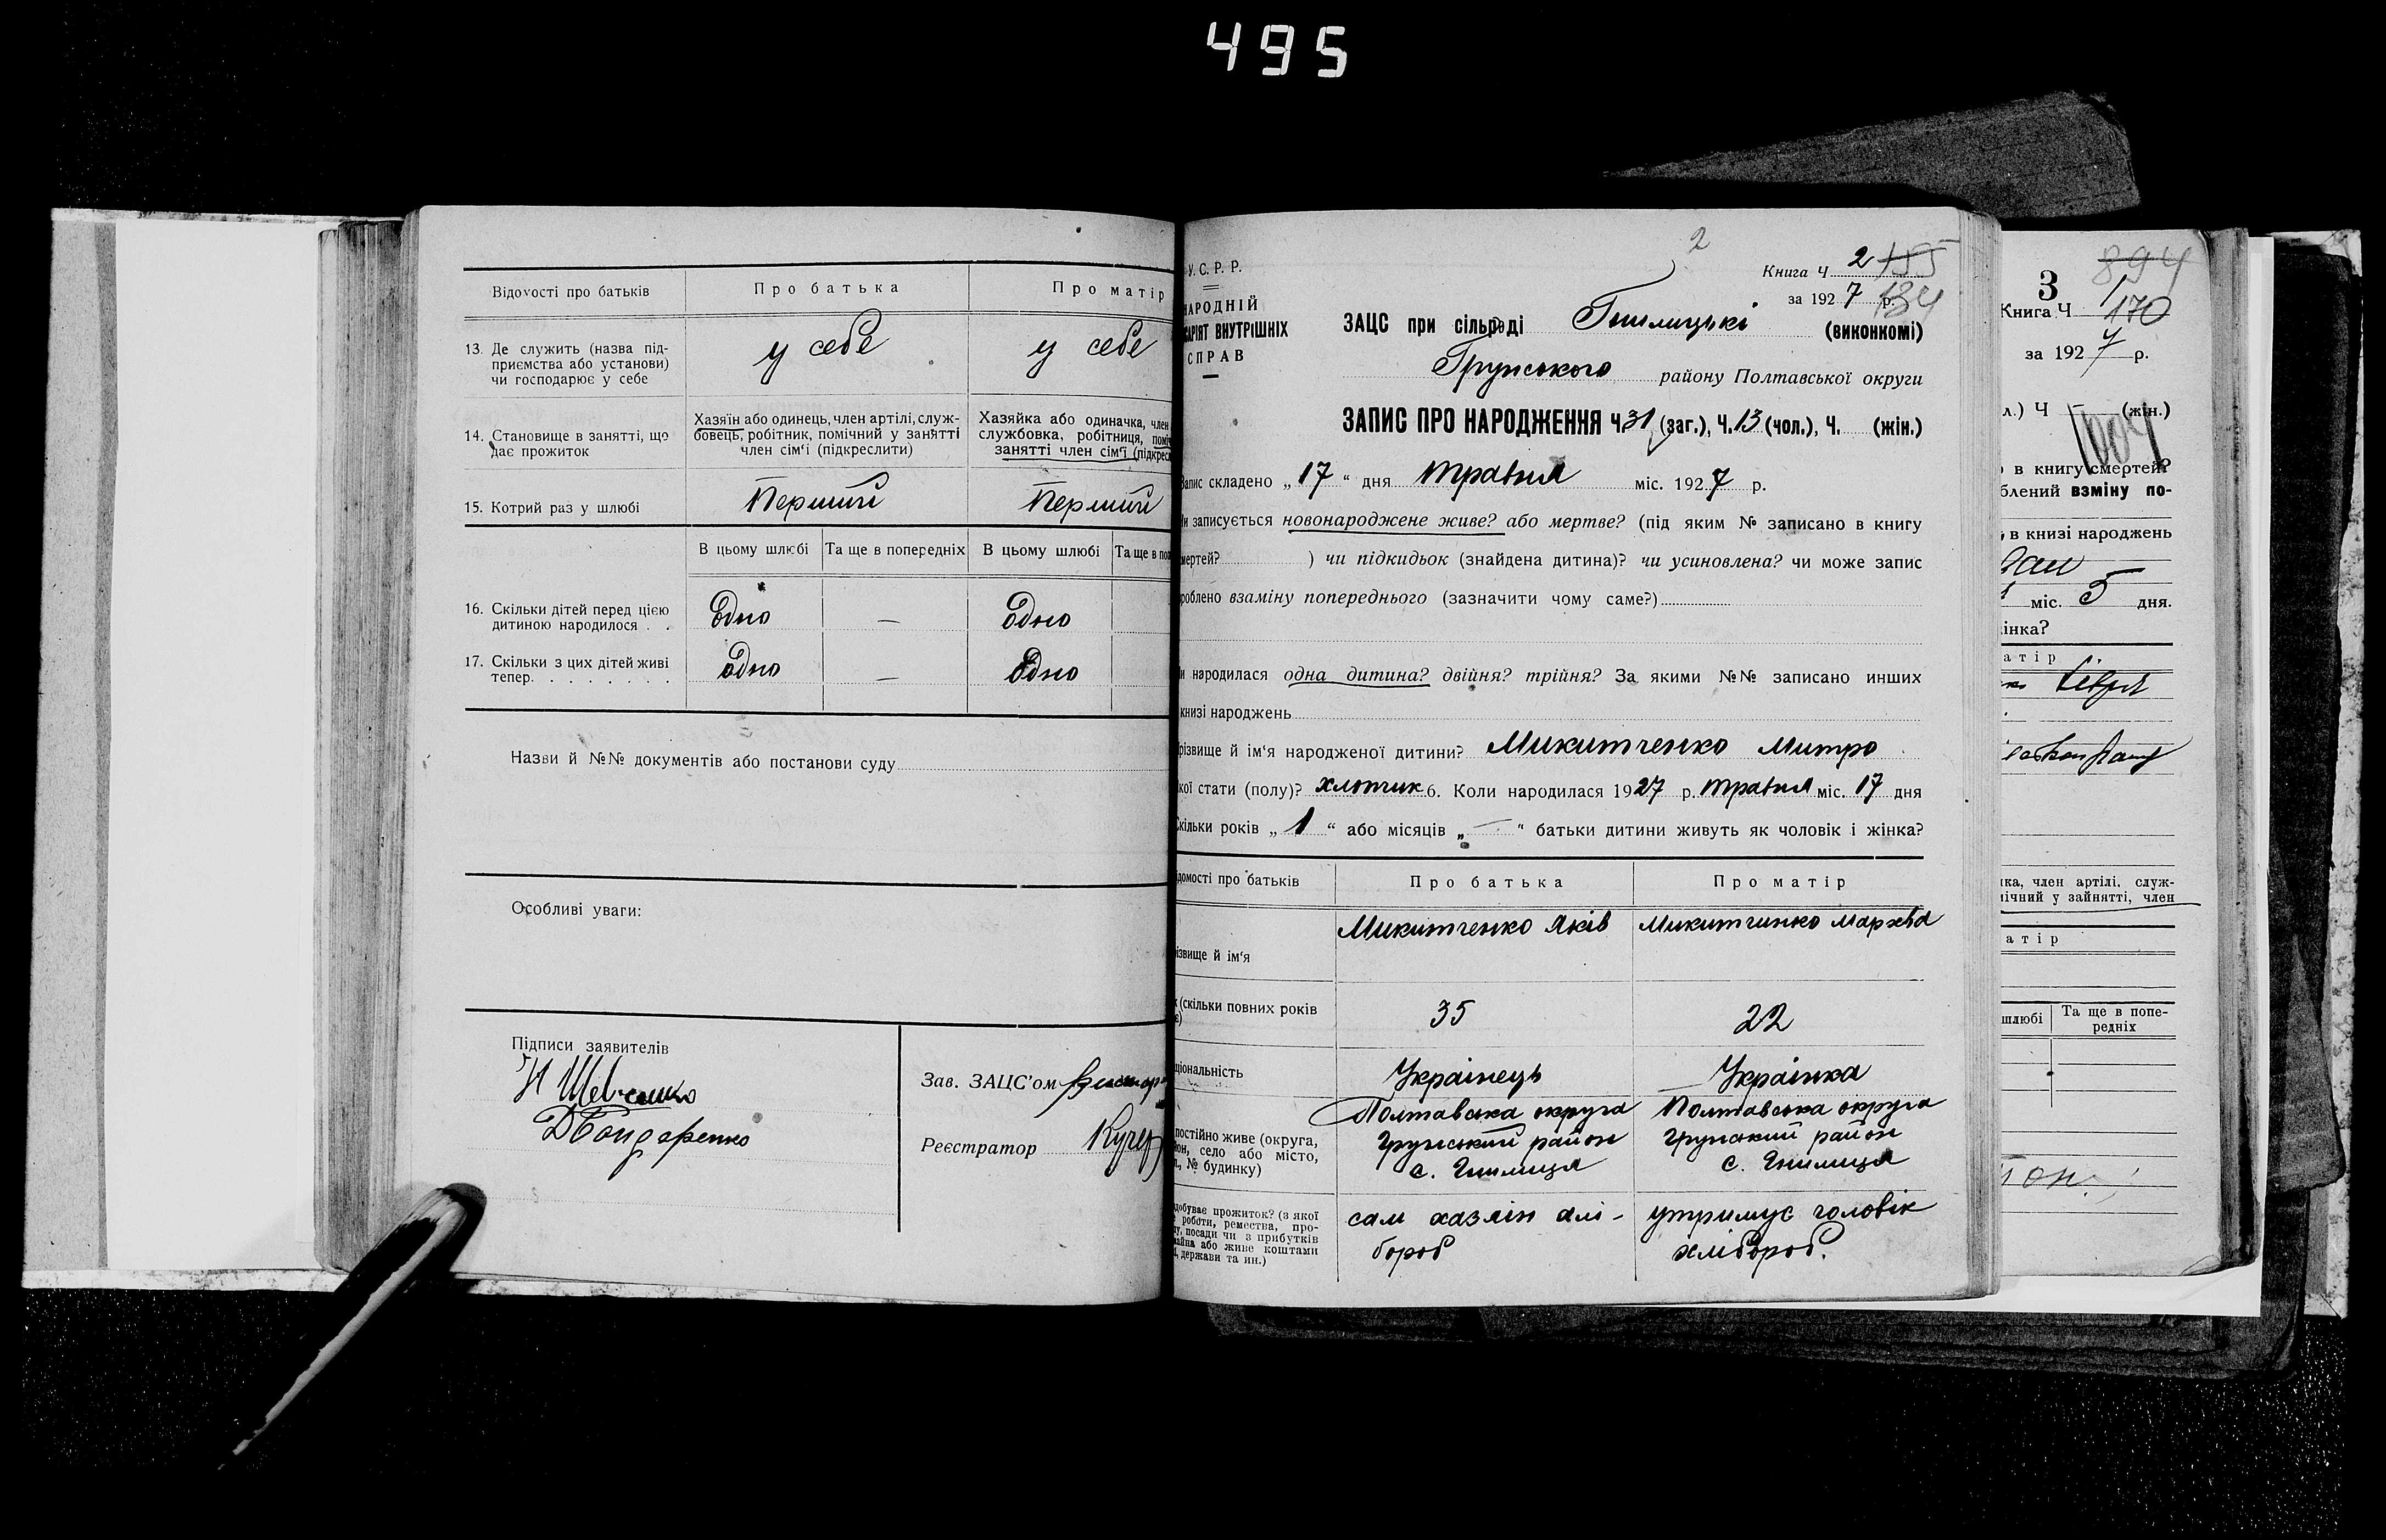 495
Відомості про батьків
Про батька
Про матір
13. Де служить (назва під-
приємства або установи)
чи господарює у себе
у себе
у себе
14. Становище в занятті, що
дає прожиток
Хазяїн або одинець, член артілі, служ-
бовець, робітник, помічний у занятті
член сім'ї (підкреслити)
Хазяйка або одиначка, член
службовка, робітниця, поміч
занятті член сім'ї (підкресл
15. Котрий раз у шлюбі
Перший
Перший
В цьому шлюбі
Та ще в попередніх
В цьому шлюбі
Та ще в поп
16. Скільки дітей перед цією
дитиною народилося . .
Одно
—
Одно
17. Скільки з цих дітей живі
тепер. . . . . . . .
одно
—
Одно
Назви й №№ документів або постанови суду
Особливі уваги:
Підписи заявителів
Н Шевченко
Д Бондаренко
Зав. ЗАЦС'ом
Реєстратор Кучер
У. С. Р. Р.
НАРОДНІЙ
САРІЯТ ВНУТРІШНІХ
СПРАВ
2
Книга Ч 2 155
за 1927 р. 134
ЗАЦС при сільраді Гнилицькі (виконкомі)
Грунського району Полтавської округи
ЗАПИС ПРО НАРОДЖЕННЯ Ч. 31 (заг.), Ч. 13 (чол.), Ч. (жін.)
Запис складено „17“ дня травня міс. 1927 р.
Чи записується новонароджене живе? або мертве? (під яким № записано в книгу
смертей? ) чи підкидьок (знайдена дитина)? чи усиновлена? чи може запис
зроблено взаміну попереднього (зазначити чому саме?)
Чи народилася одна дитина? двійня? трійня? За якими №№ записано инших
книзі народжень
різвище й ім'я народженої дитини? Микитченко Митро
кої стати (полу)? хлопчик 6. Коли народилася 1927 р. травня міс. 17 дня
Скільки років „1“ або місяців „—“ батьки дитини живуть як чоловік і жінка?
ідомості про батьків
Про батька
Про матір
ізвище й ім'я
Микитченко Яків
Микитчинко Мархва
к (скільки повних років
35
22
ціональність
Українець
Українка
постійно живе (округа,
йон, село або місто,
л., № будинку)
Полтавська округа
Грунський район
с. Гнилиця
Полтавська округа
Грунский район
с. Гнилиця
добуває прожиток? (з якої
роботи, ремества, про-
у, посади чи з прибутків
майна або живе коштами
, держави та ин.)
сам хазяін хлі-
бороб
утримує чоловік
хлібороб.
894
3
Книга Ч 1
170
за 1927 р.
л.) Ч — (жін.)
в книгу смертей?
блений взміну по-
в книзі народжень
міс. 5 дня.
інка?
атір
ка, член артілі, служ-
мічний у зайнятті, член
атір
шлюбі
Та ще в попе-
редніх